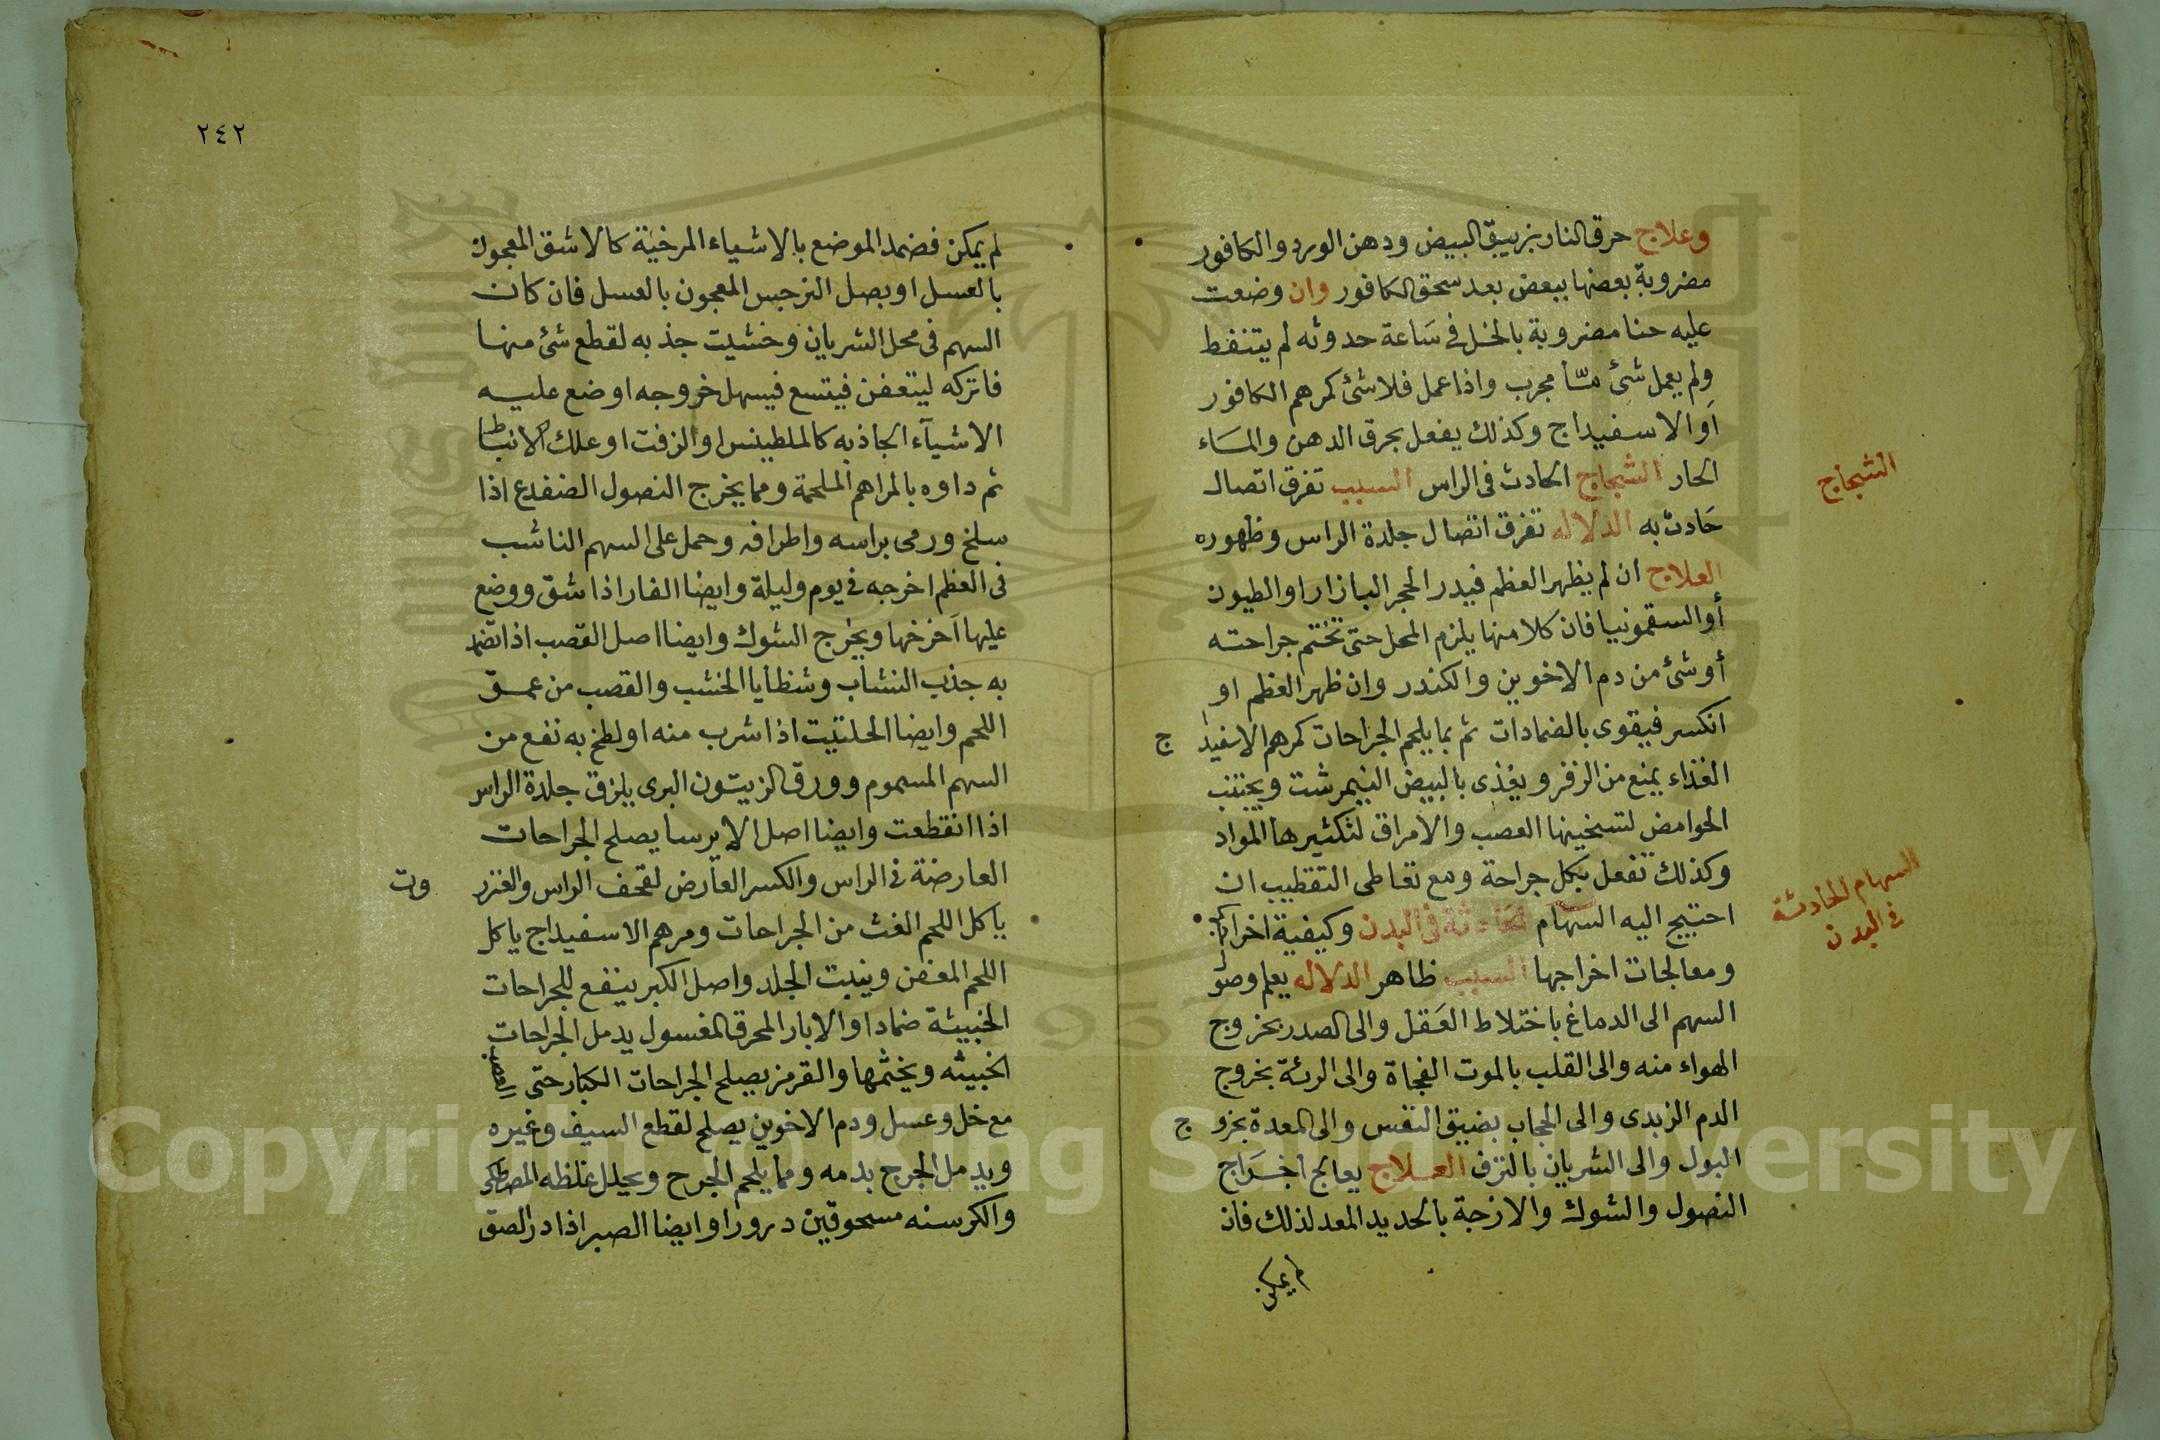 وعلاج حرق النار بزيبق البيض ودهن الورد والكافور
مضروبة بعضها ببعض بعد سحق الكافور وان وضعت
عليه حنا مضروبة بالخل في ساعة حدوثه لم يتنفط
ولم يعمل شئ مّا مجرب واذا عمل فلا شئ كمرهم الكافور
او الاسفيداج وكذلك يفعل بحرق الدهن والماء
الحار الشجاج الحادث في الراس السبب تفرق اتصال
حادث به الدلاله تفرق اتصال جلدة الراس وظهوره
العلاج ان لم يظهر العظم فيدر الحجر البازار او الطيون
أو السقمونيا فان كلا منها يلزم المحل حتى تختم جراحته
أو شئ من دم الاخوين والكندر وان ظهر العظم او
انكسر فيقوى بالضمادات ثم بما يلحم الجراحات كمرهم الاسفيدا ج
الغذاء يمنع من الزفر ويغذى بالبيض النيمرشت ويجتنب
الحوامض لتسخينها العصب والامراق لتكثيرها المواد
وكذلك تفعل بكل جراحة ومع تعاطى التقطيب ان
احتيج اليه السهام الحادثة في البدن وكيفية اخراجها
ومعالجات اخراجها السبب ظاهر الدلاله يعلم وصول
السهم الى الدماغ باختلاط العقل والى الصدر بخروج
الهواء منه والى القلب بالموت الفجاة والى الرئة بخروج
الدم الزبدى والى الحجاب بضيق النفس والى المعدة بخرو ج
البول والى الشريان بالنزف العلاج يعالج اخراج
النصول والشوك والازجة بالحديد المعد لذلك فان
لم يمكن
الشجاج
السهام الحادثة
في البدن
٢٤٢
لم يمكن فضمد الموضع بالاشياء المرخية كالاشق المعجون
بالعسل او بصل النرجس المعجون بالعسل فان كان
السهم في محل الشريان وخشيت جذبه لقطع شئ منها
فاتركه ليتعفن فيتسع فيسهل خروجه او ضع عليه
الاشيآء الجاذبه كالملطينس او الزفت او علك الانباط
ثم داوه بالمراهم الملحمة ومما يخرج النصول الضفدع اذا
سلخ ورمى براسه واطرافه وحمل على السهم الناشب
فى العظم اخرجه في يوم وليلة وايضا الفار اذا شق ووضع
عليها اخرجها ويخرج الشوك وايضا اصل القصب اذا تضمد
به جذب النشاب وشظايا الخشب والقصب من عمق
اللحم وايضا الحلتيت اذا شرب منه او لطخ به نفع من
السهم المسموم وورق الزيتون البرى يلزق جلدة الراس
اذا انقطعت وايضا اصل الايرسا يصلح الجراحات
العارضة في الراس والكسر العارض لقحف الراس والعنزر وت
ياكل اللحم الغث من الجراحات ومرهم الاسفيداج ياكل
اللحم المعفن وينبت الجلد واصل الكبر ينفع للجراحات
الخبيثة ضمادا والابار المحرق المغسول يدمل الجراحات
الخبيثه ويختمها والقرمز يصلح الجراحات الكبار حتى
مع خل وعسل ودم الاخوين يصلح لقطع السيف وغيره
ويدمل الجرح بدمه ومما يلحم الجرح ويحلل غلظه المصطكى
والكرسنه مسحوقين درورا وايضا الصبر اذا در الصق
Copyright © King Saud University